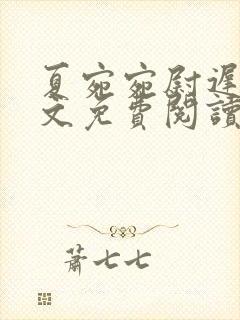 夏宛宛尉遲
文免費閱讀
蕭七七